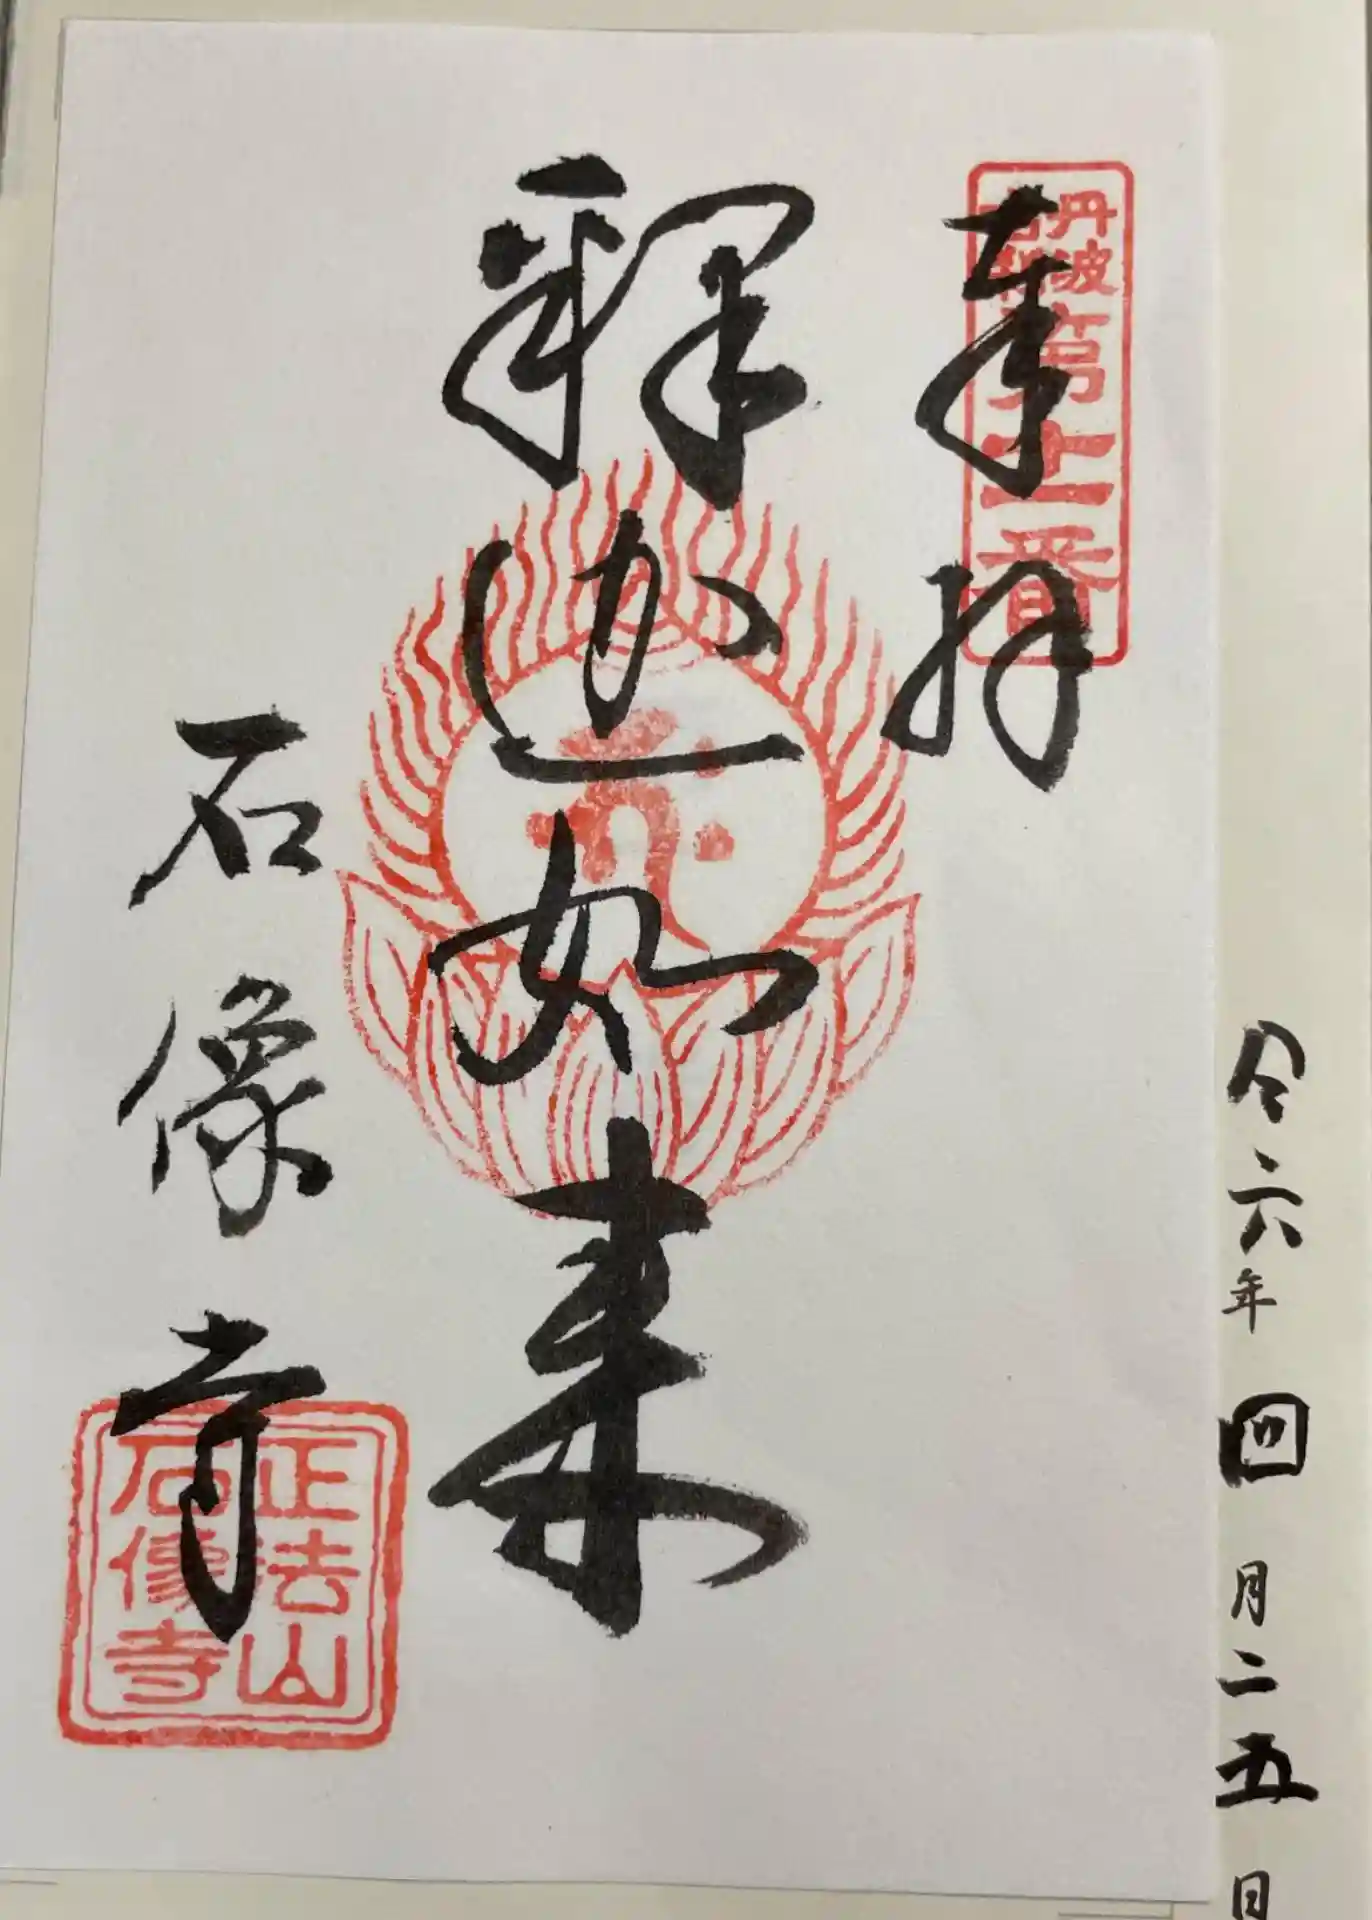 令六年四月二五日
丹波
古刹
第十一番
奉拝
釋迦如来
石像寺
正法山
石像寺